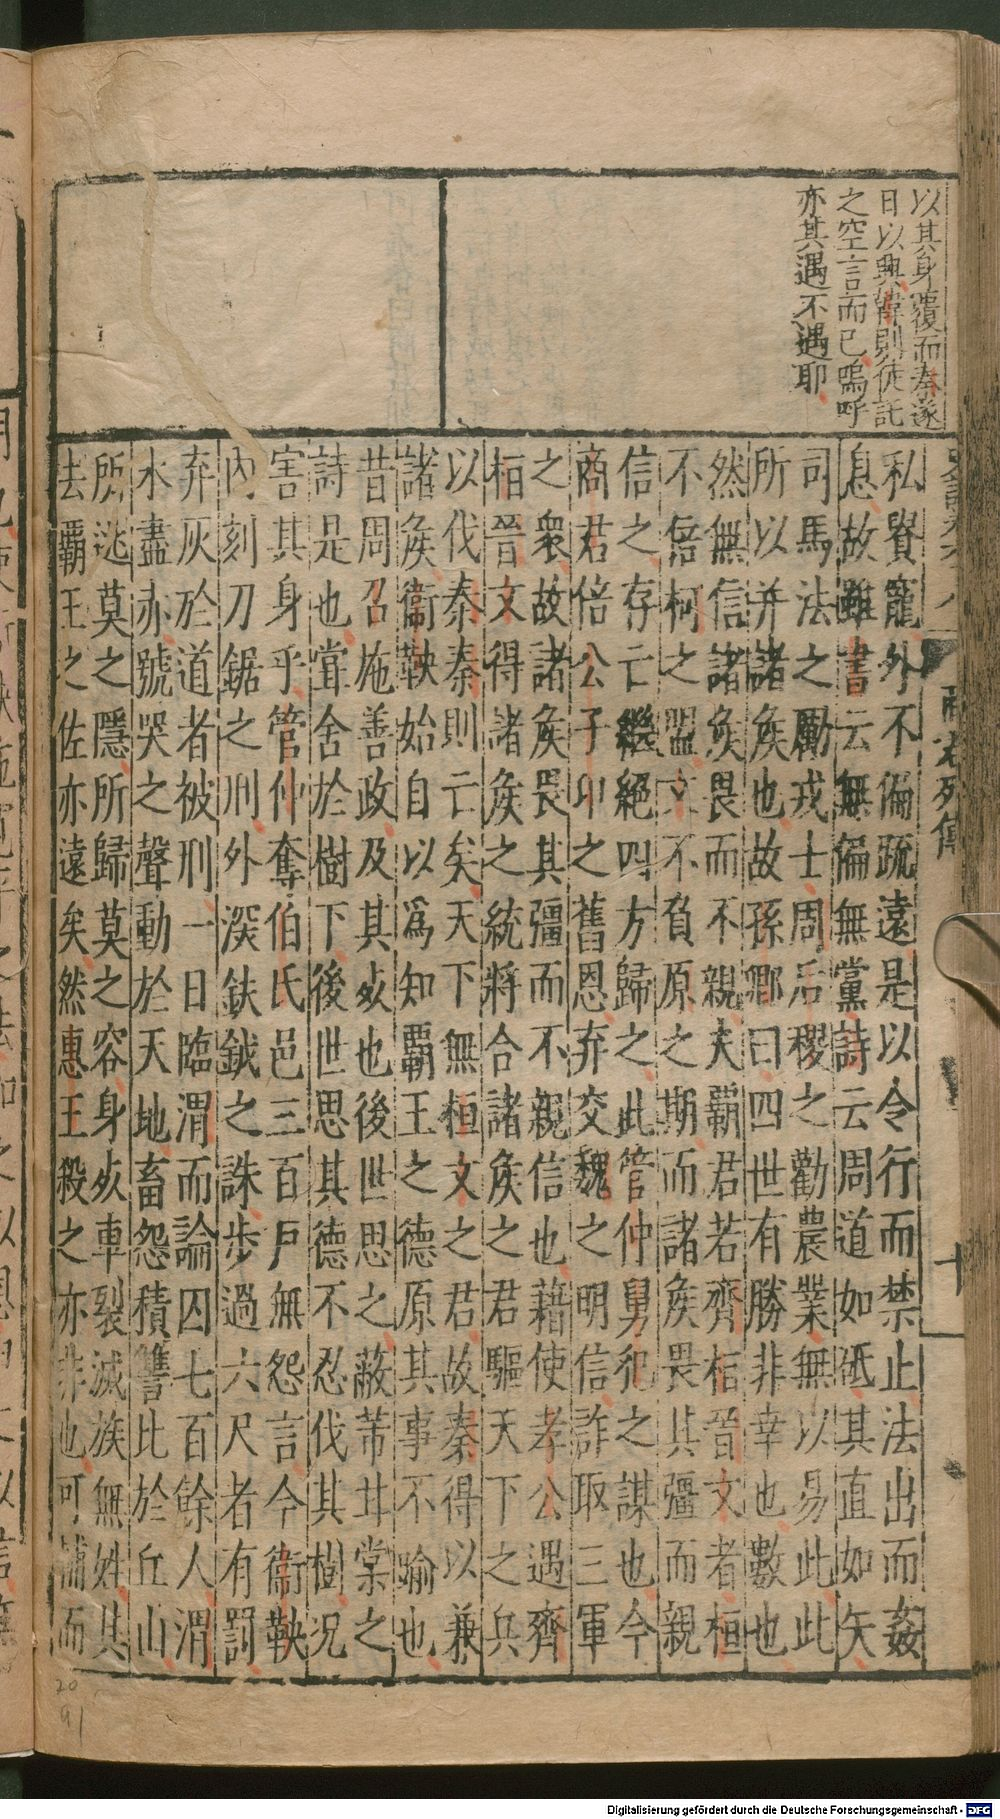 以其身覆而秦遂
日以興偉則徒託
之空言而已嗚呼
亦其遇不遇耶
商君列傳
十
私賢寵外不偏疏遠是以令行而禁止法出而姦
息故雖書云無偏無黨詩云周道如砥其直如矢
司馬法之勵戎士周后稷之勸農業無以易此此
所以并諸矦也故孫卿曰四世有勝非幸也數也
然無信諸矦畏而不親夫覇君若齊桓晉文者桓
不倍柯之盟文不負原之期而諸矦畏其彊而親
信之存亡繼絕四方歸之此管仲舅犯之謀也今
商君倍公子卬之舊恩弃交魏之明信詐取三軍
之衆故諸矦畏其彊而不親信也藉使孝公遇齊
桓晉文得諸矦之統將合諸矦之君驅天下之兵
以伐秦秦則亡矣天下無桓文之君故秦得以兼
諸矦衞鞅始自以爲知覇王之德原其事不喻也
昔周召施善政及其死也後世思之蔽芾甘棠之
詩是也甞舍於樹下後世思其德不忍伐其樹况
害其身乎管仲奪伯氏邑三百戸無怨言今衞鞅
內刻刀鋸之刑外深鈇鉞之誅步過六尺者有罰
弃灰於道者被刑一日臨渭而論囚七百餘人渭
水盡赤號哭之聲動於天地畜怨積讐比於丘山
所逃莫之隱所歸莫之容身死車裂滅族無姓其
去覇王之佐亦遠矣然惠王殺之亦非也可輔而
20
91
Digitalisierung gefördert durch die Deutsche Forschungsgemeinschaft - DFG